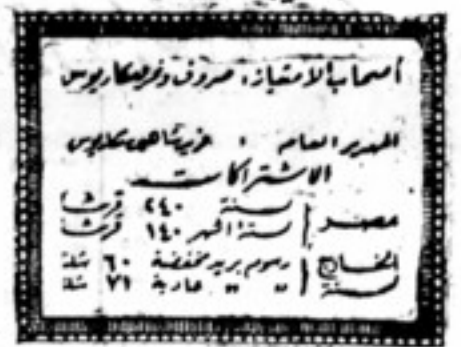 أصحاب الامتياز: صروف ونمر ومكاريوس
المدير العام : عزيز شاهين مكاريوس
الاشتراكات
مصر سنة ٢٤٠ قرشا
ستة اشهر ١٤٠ قرشا
الخارج رسوم بريد مخفضة ٦٠ شلنا
سنة " " عادية ٧١ شلنا